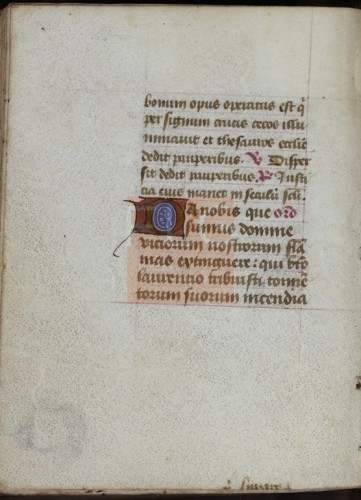 bonum opus operatus est q̄
per signum crucis cecos illu
minauit et thesauros ecclīe
dedit pauperibus. ℣ Disper
sit dedit pauperibus. ℟ Justi
cia eius manet in seculū sclī.
Da nobis que ord
sumus domine
viciorum nostrorum flā
mas extinguere: qui bt̄o
laurentio tribuisti tormē
torum suorum incendia